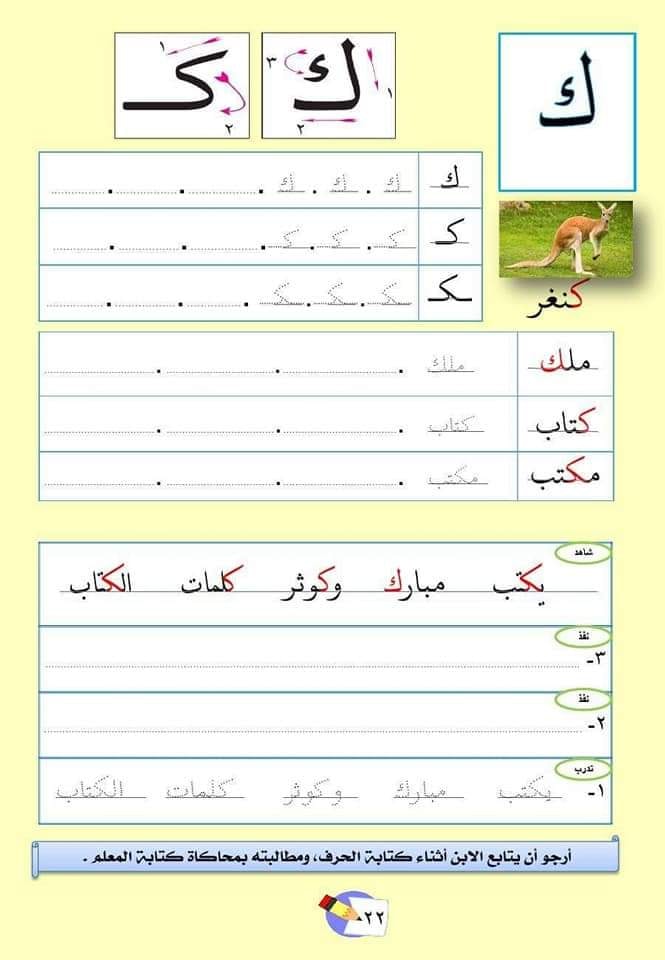 ك
ك ١ ٢ ٣
كـ ١ ٢
كنغر
ك ك . ك . ك .
كـ كـ . كـ . كـ
ـكـ ـكـ . ـكـ . ـكـ
ملك ملك
كتاب كتاب
مكتب مكتب
شاهد
يكتب مبارك وكوثر كلمات الكتاب
نفذ
٣-
نفذ
٢-
تدرب
١- يكتب مبارك وكوثر كلمات الكتاب
أرجو أن يتابع الابن أثناء كتابة الحرف، ومطالبته بمحاكاة كتابة المعلم .
٢٢